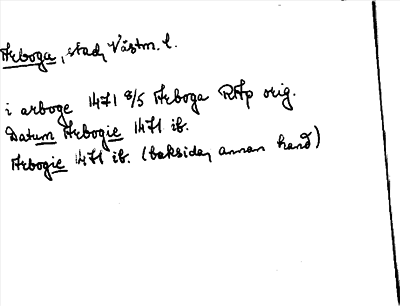 Arboga, stad, Västm. l.
i arboge 1471 8/5 Arboga RAp orig.
Datum Arbogie 1471 ib.
Arbogie 1471 ib. (baksidan, annan hand)